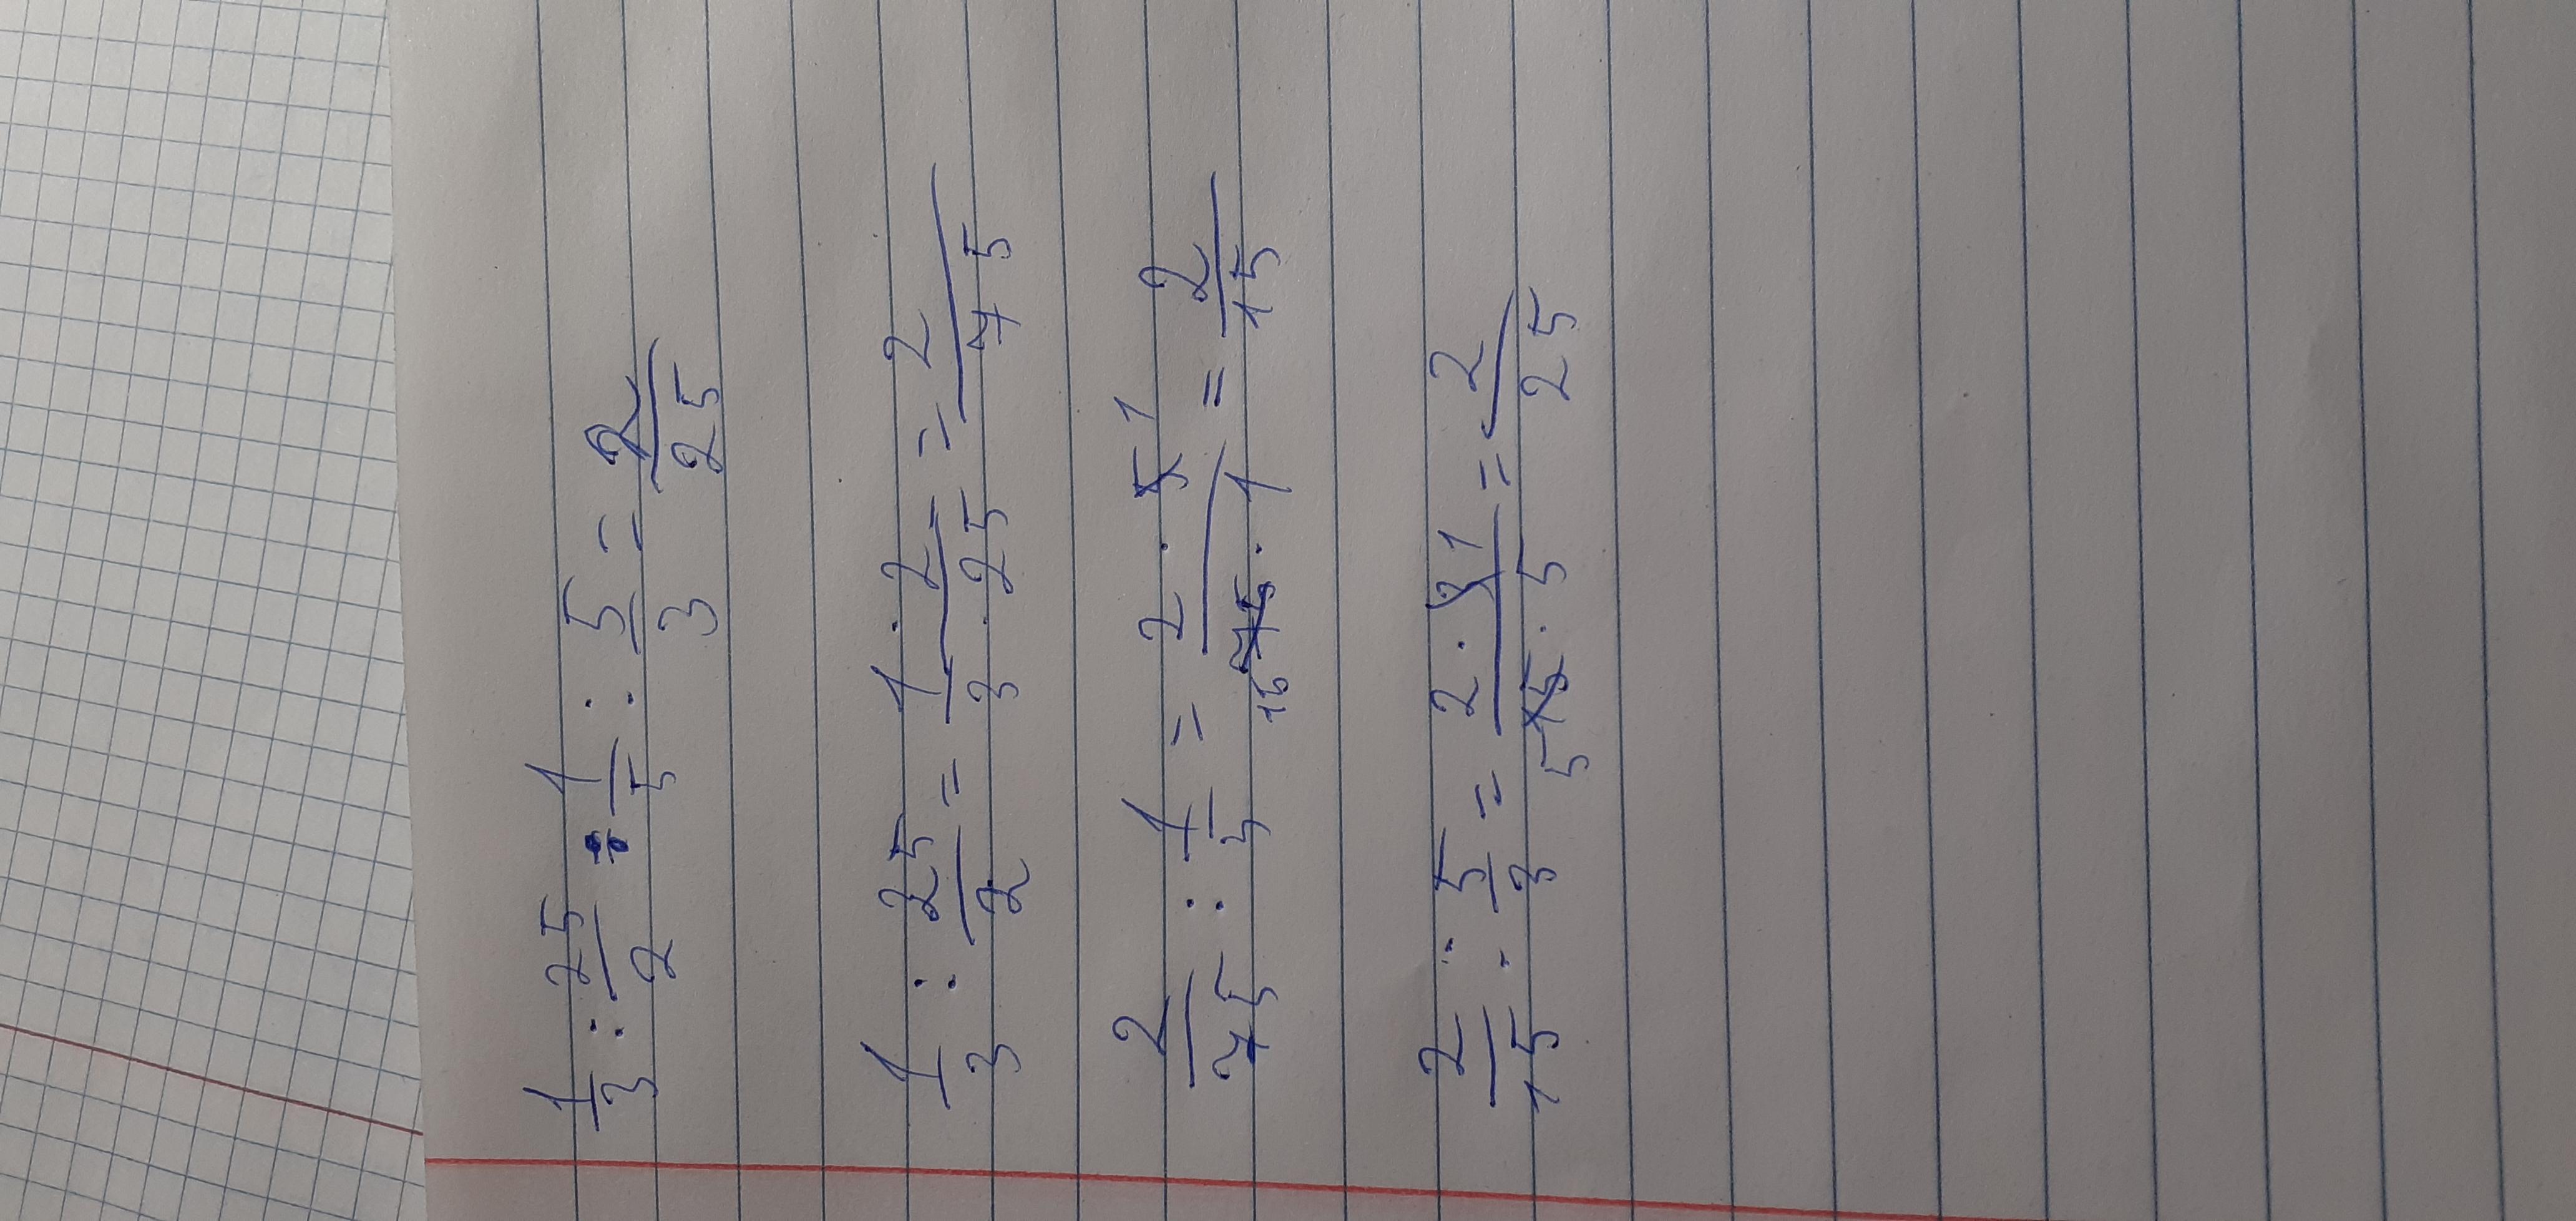 1/3 : 25/2 : 1/5 : 5/3 = 2/25
1/3 : 25/2 = 1/3 · 2/25 = 2/75
2/75 : 1/5 = 2 · 5 1 / 15 75 · 1 = 2/15
2/15 : 5/3 = 2 · 3 1 / 5 15 · 5 = 2/25